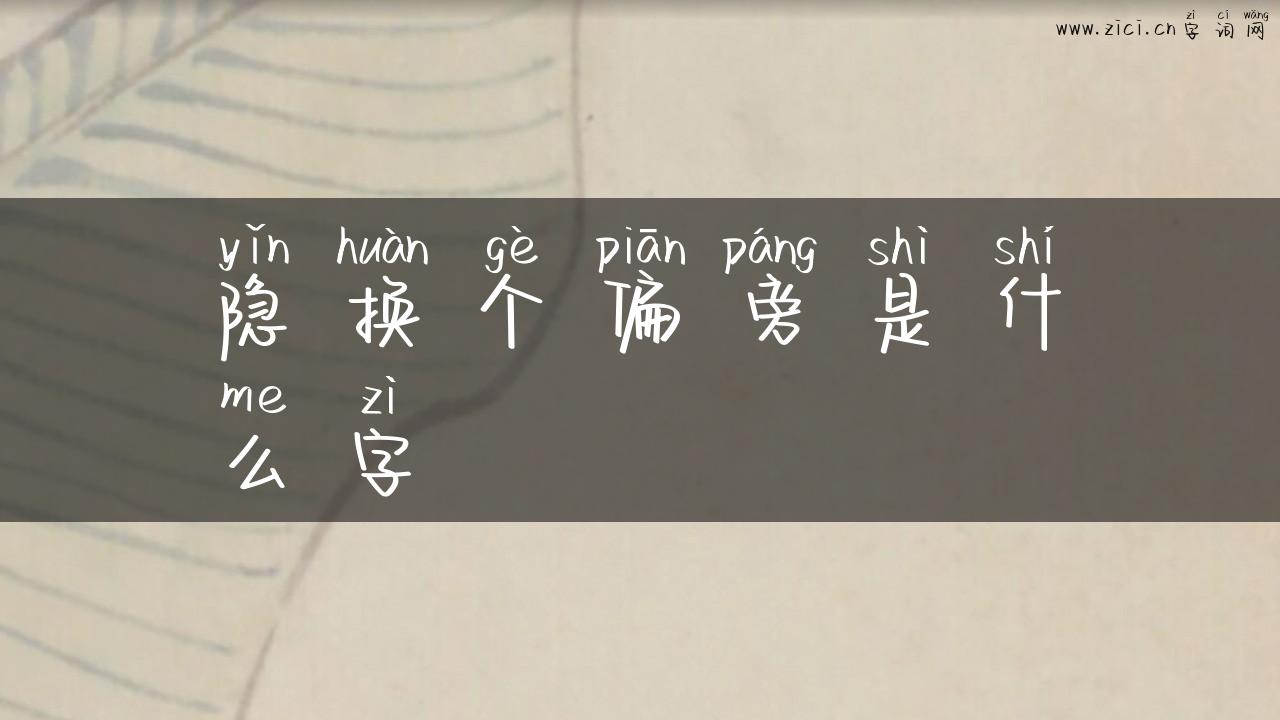 zì cí wǎng
www.zici.cn 字 词 网
yǐn huàn gè piān páng shì shí
隐 换 个 偏 旁 是 什
me zì
么 字